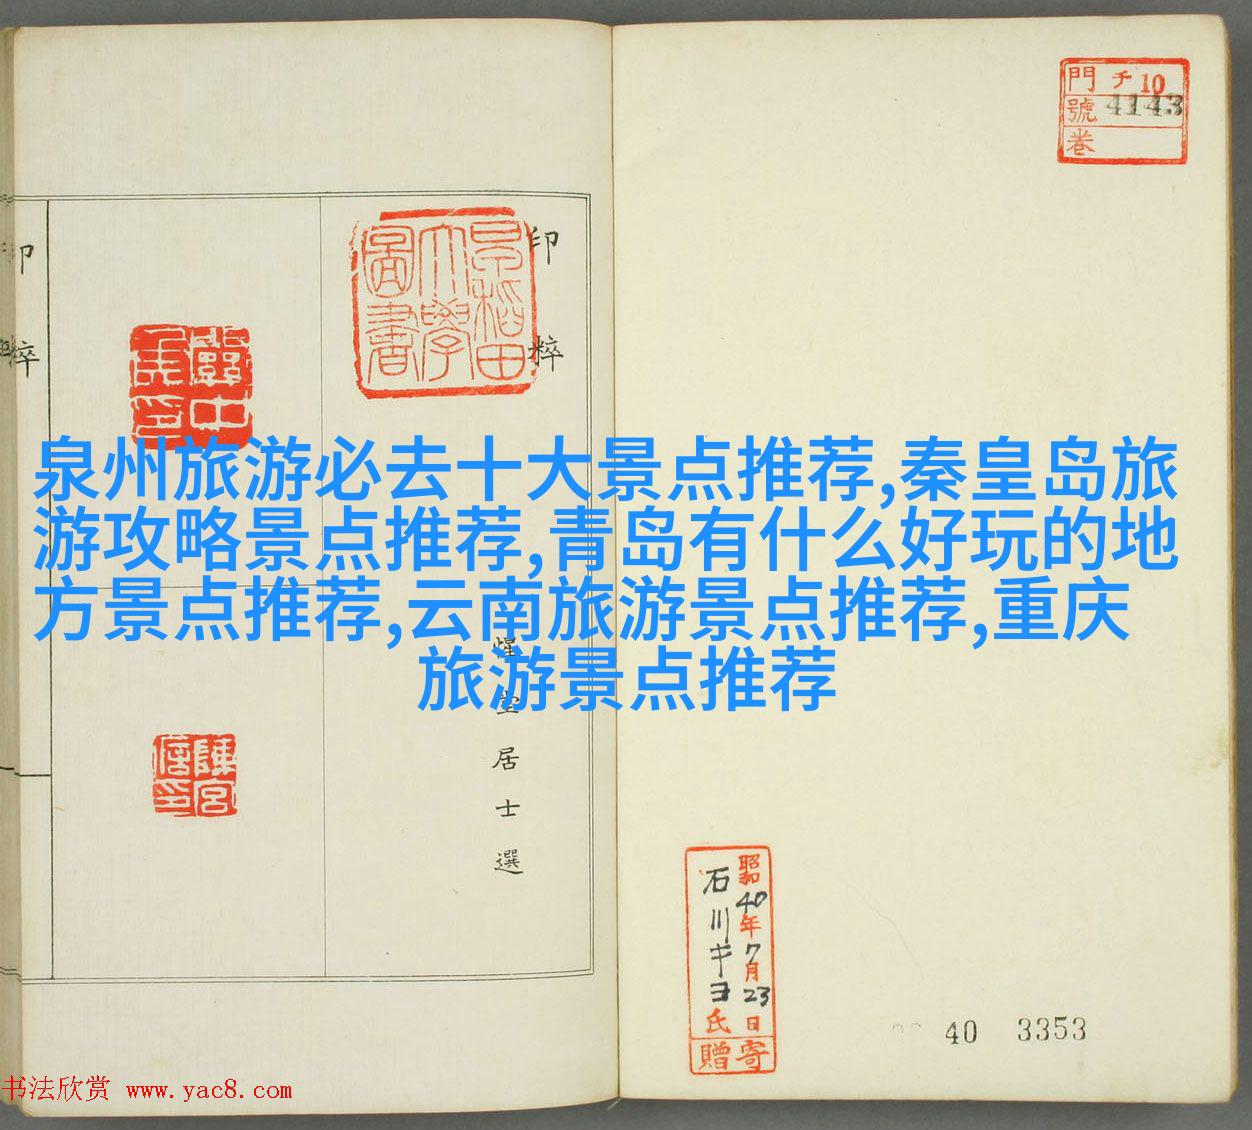 門 チ10
號 4143
卷
印粹
早稻田大學圖書
印粹
泉州旅游必去十大景点推荐,秦皇岛旅
游攻略景点推荐,青岛有什么好玩的地
方景点推荐,云南旅游景点推荐,重庆
旅游景点推荐
惺堂居士選
昭和40年7月23日
石川キヨ氏
寄贈
40 3353
书法欣赏 www.yac8.com